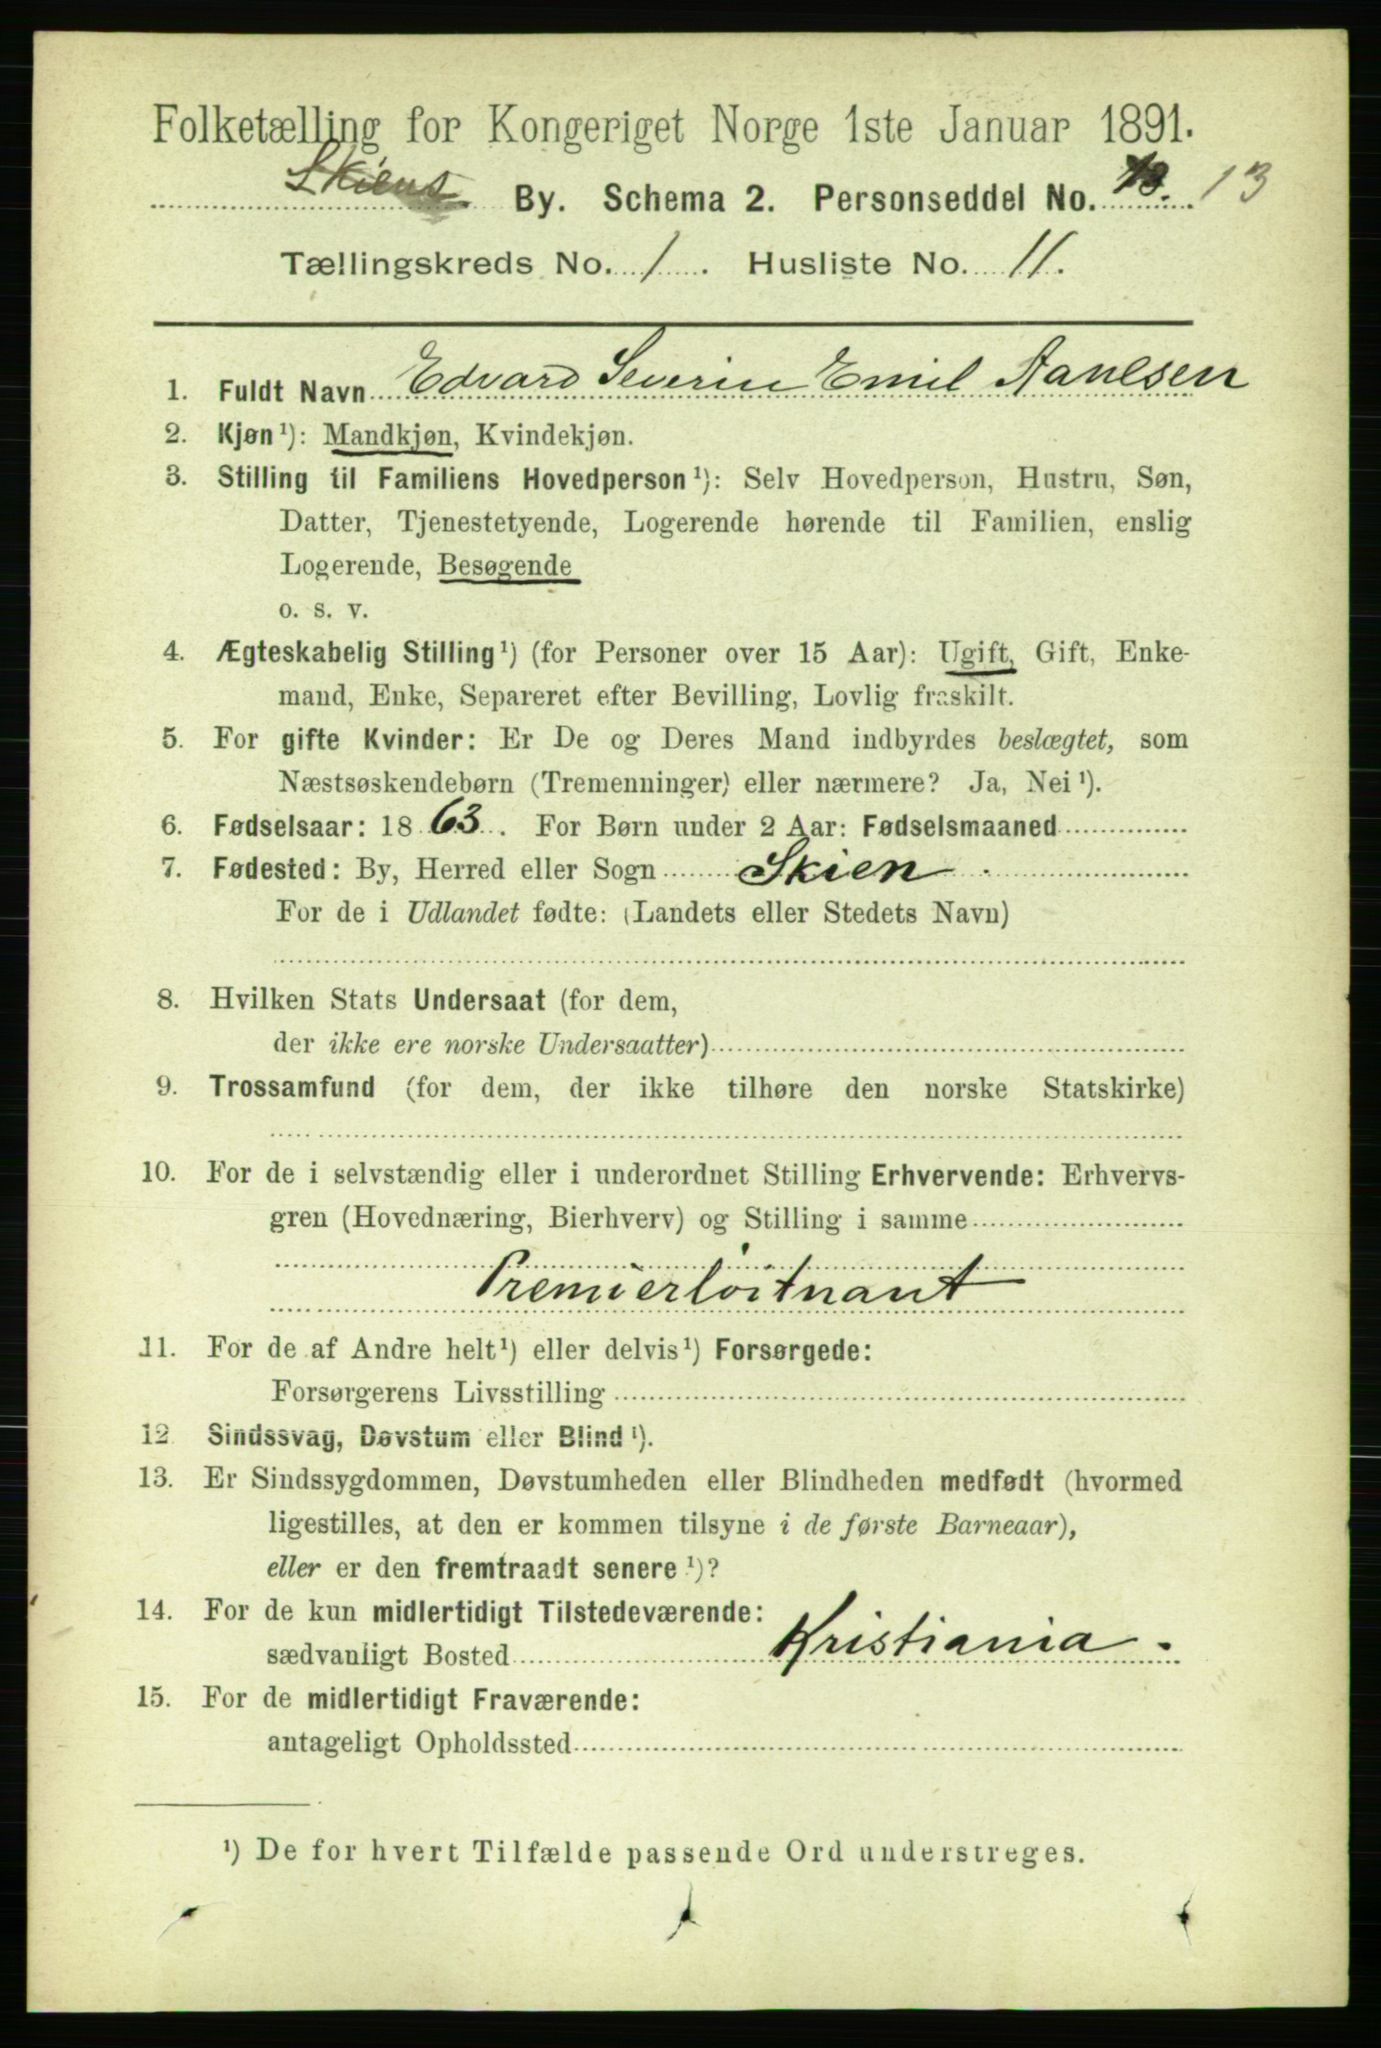 Folketælling for Kongeriget Norge 1ste Januar 1891.
Skiens By. Schema 2. Personseddel No. 13
Tællingskreds No. 1. Husliste No. 11.
1. Fuldt Navn Edvard Severin Emil Aanesen
2. Kjøn¹): Mandkjøn, Kvindekjøn.
3. Stilling til Familiens Hovedperson¹): Selv Hovedperson, Hustru, Søn,
Datter, Tjenestetyende, Logerende hørende til Familien, enslig
Logerende, Besøgende
o. s. v.
4. Ægteskabelig Stilling¹) (for Personer over 15 Aar): Ugift, Gift, Enke-
mand, Enke, Separeret efter Bevilling, Lovlig fraskilt.
5. For gifte Kvinder: Er De og Deres Mand indbyrdes beslægtet, som
Næstsøskendebørn (Tremenninger) eller nærmere? Ja, Nei¹).
6. Fødselsaar: 1863. For Børn under 2 Aar: Fødselsmaaned
7. Fødested: By, Herred eller Sogn Skien.
For de i Udlandet fødte: (Landets eller Stedets Navn)
8. Hvilken Stats Undersaat (for dem,
der ikke ere norske Undersaatter)
9. Trossamfund (for dem, der ikke tilhøre den norske Statskirke)
10. For de i selvstændig eller i underordnet Stilling Erhvervende: Erhvervs-
gren (Hovednæring, Bierhverv) og Stilling i samme
Premierløitnant
11. For de af Andre helt¹) eller delvis¹) Forsørgede:
Forsørgerens Livsstilling
12 Sindssvag, Døvstum eller Blind¹).
13. Er Sindssygdommen, Døvstumheden eller Blindheden medfødt (hvormed
ligestilles, at den er kommen tilsyne i de første Barneaar),
eller er den fremtraadt senere¹)?
14. For de kun midlertidigt Tilstedeværende:
sædvanligt Bosted Kristiania.
15. For de midlertidigt Fraværende:
antageligt Opholdssted
¹) De for hvert Tilfælde passende Ord understreges.